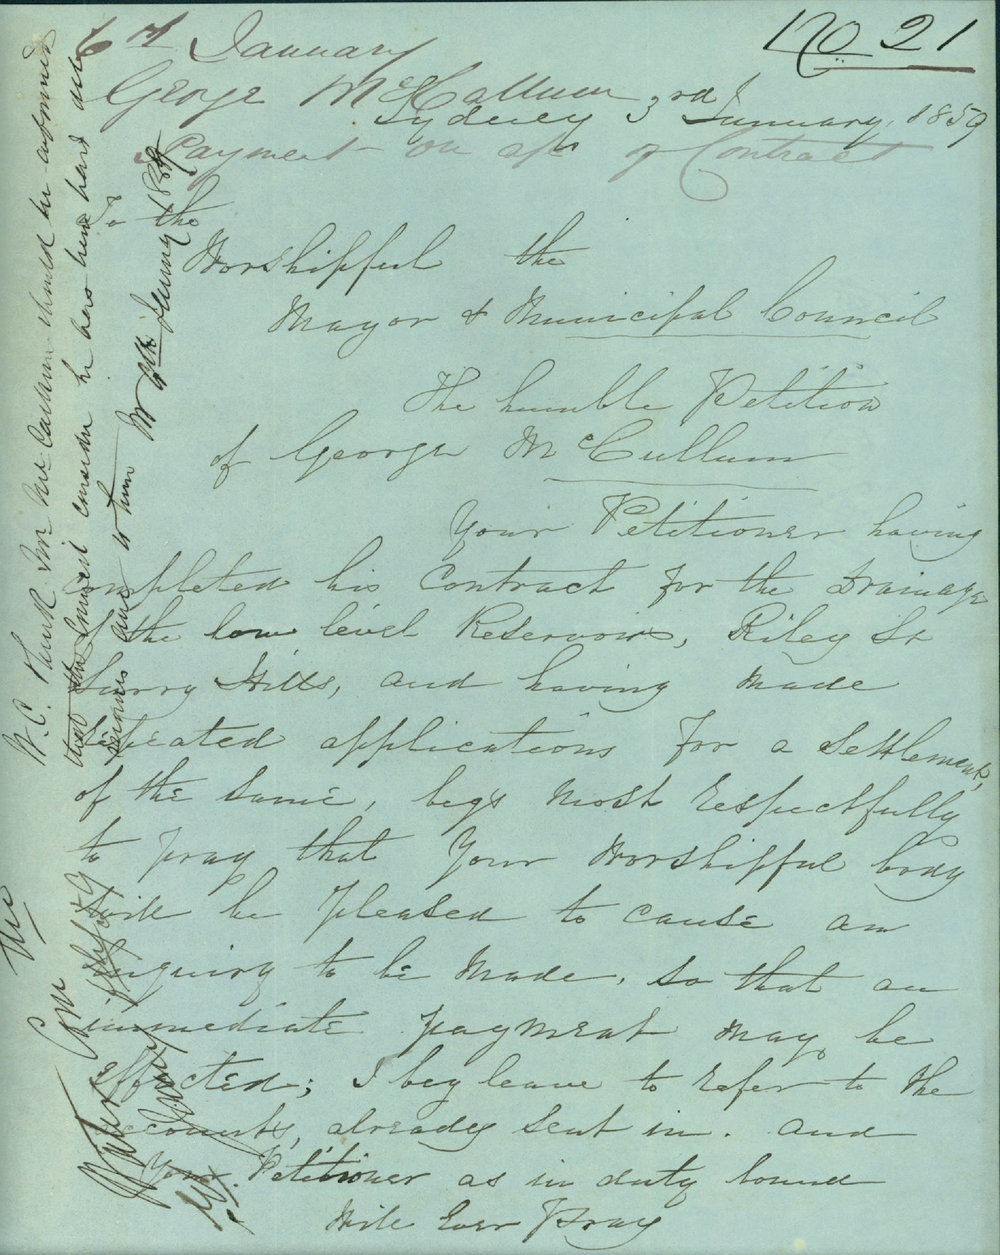 No 21
6th January
George McCallum
Sydney 3rd January, 1859
Payment on a/c of Contract
To the
Worshipful the
Mayor & Municipal Council
The humble Petition
of George McCullum
Your Petitioner having
completed his Contract for the Drainage
of the low level Reservoir, Riley St
Surry Hills, and having made
repeated applications for a Settlement,
of the same, begs most respectfully
to pray that Your Worshipful body
will be pleased to cause an
inquiry to be made, so that an
immediate payment may be
effected; I beg leave to refer to the
accounts, already sent in. and
Your Petitioner as in duty bound
Will Ever Pray
W.C. think Mr McCallum should be informed
that the Council consider he has been paid all
monies due to him
Jany 1859
Water Com